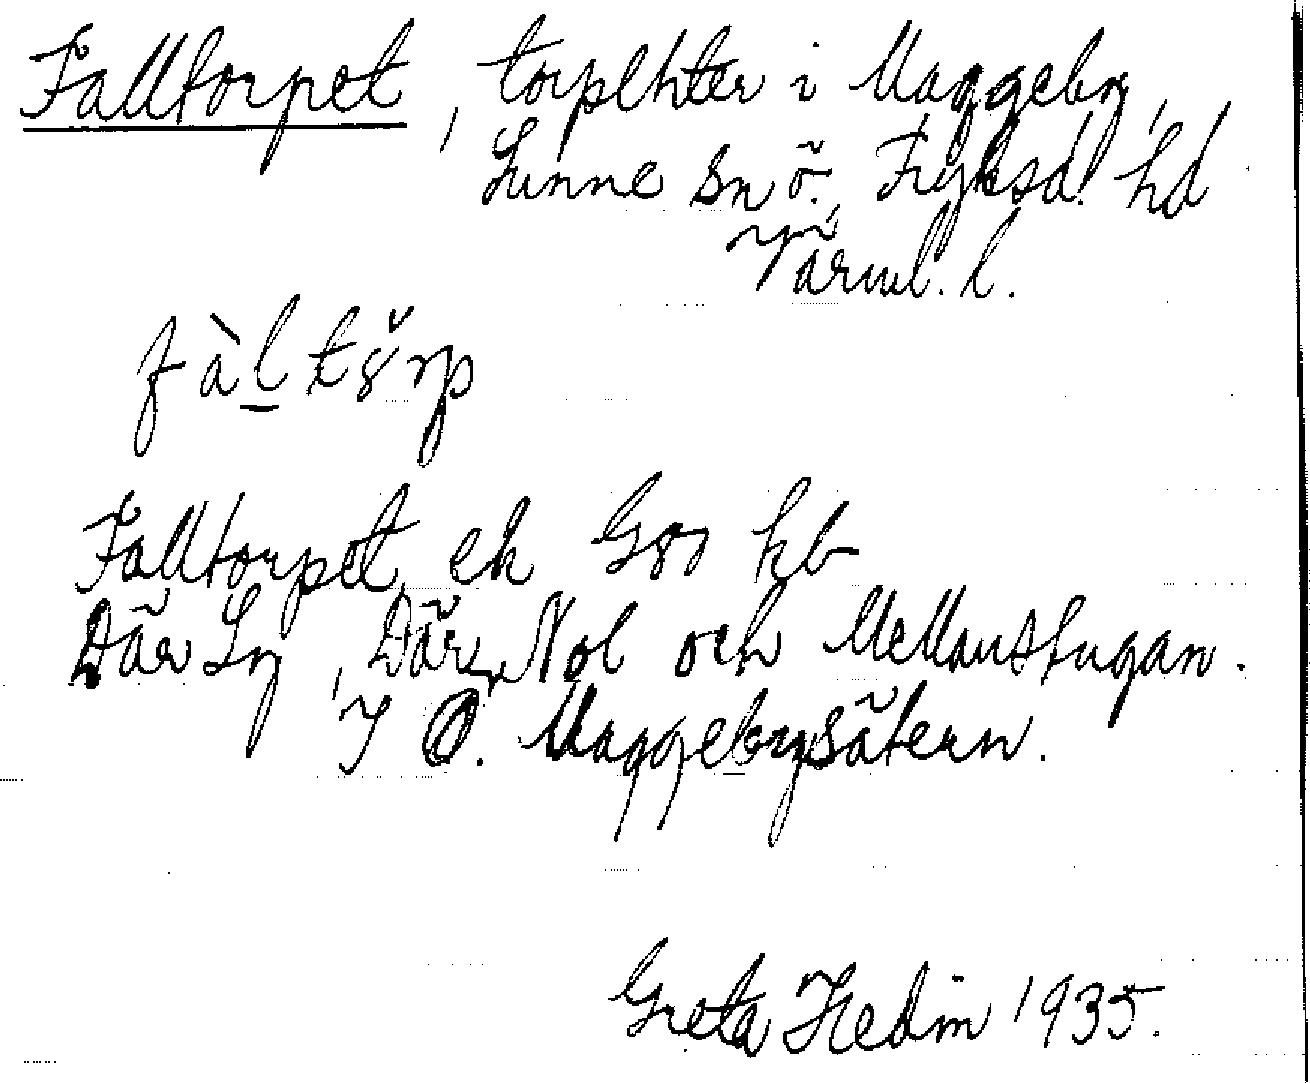 Falltorpet, torplhter i Maggeby,
Sunne sn Ö. Fryksd. hd
Värml. l.
fàltŏrp
Falltorpet ek G87 kb
Där Sn, Där, Nol och Mellanstugan.
I Ö. Maggebysätern.
Greta Hedin 1935.